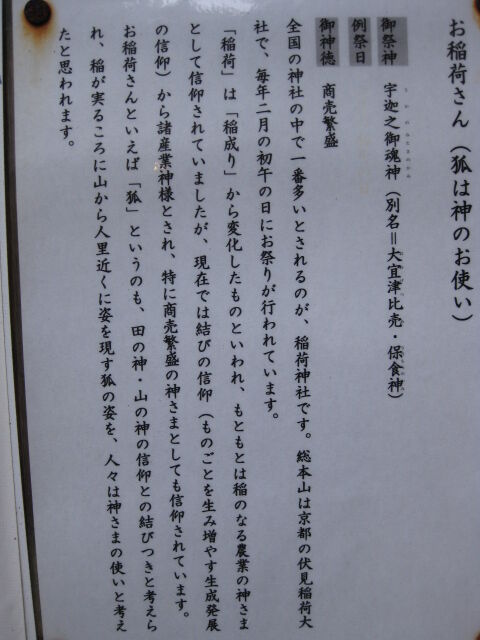 お稲荷さん（狐は神のお使い）
御祭神　宇迦之御魂神（別名＝大宜津比売・保食神）
例祭日
御神徳　商売繁盛
全国の神社の中で一番多いとされるのが、稲荷神社です。総本山は京都の伏見稲荷大
社で、毎年二月の初午の日にお祭りが行われています。
「稲荷」は「稲成り」から変化したものといわれ、もともとは稲のなる農業の神さま
として信仰されていましたが、現在では結びの信仰（ものごとを生み増やす生成発展
の信仰）から諸産業神様とされ、特に商売繁盛の神さまとしても信仰されています。
お稲荷さんといえば「狐」というのも、田の神・山の神の信仰との結びつきと考えら
れ、稲が実るころに山から人里近くに姿を現す狐の姿を、人々は神さまの使いと考え
たと思われます。